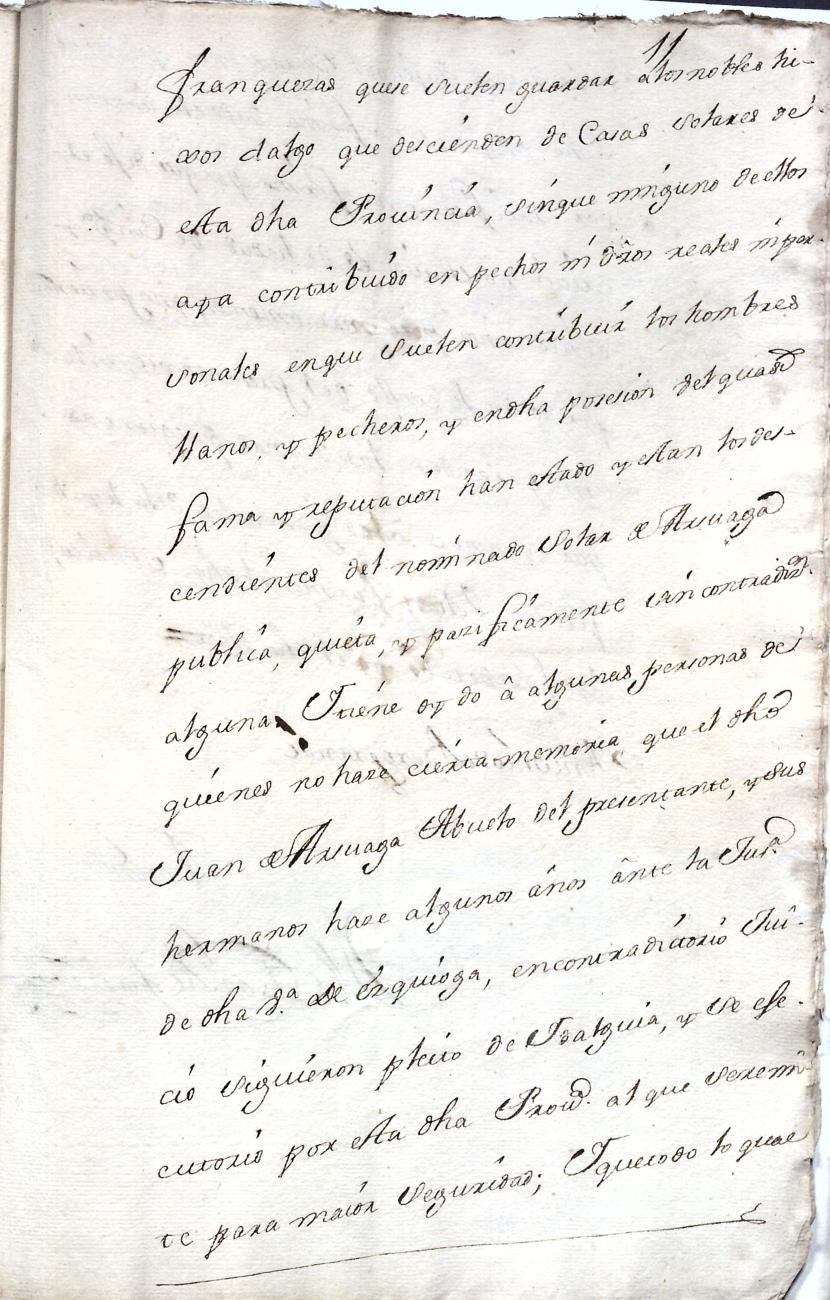 11
franquezas quese suelen guardar âlos nobles hi-
xos dalgo que descienden de Casas solares de
esta dha Provincia, sinque ninguno de ellos
aya contribuido en pechos ni dros reales niper-
sonales enque suelen contribuir los hombres
llanos, y pecheros, y endha posesion del quasi
fama y reputacion han estado y estan los des-
cendientes del nominado solar de Arsuaga
publica, quieta, y pazificamente sin contradizn.
alguna. Itiene oydo â algunas personas de
quienes no haze cierta memoria que el dho
Juan de Arsuaga Abuelo del presentante, y sus
hermanos haze algunos años ânte la Jusa.
de dha va. de Ezquioga, encontradictorio Jui-
cio siguieron pleito de Idalguia, y se ese-
cutorio por esta dha Prova. al que seremi-
te para maior seguridad; Iquetodo lo que